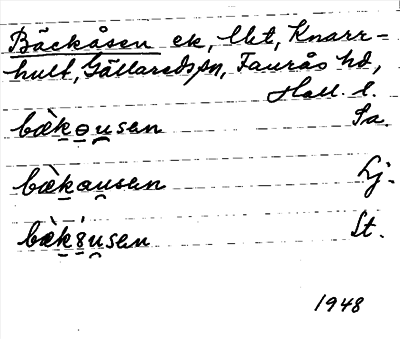 Bäckåsen ek, lht, Knarr=
hult, Gällareds sn, Faurås hd,
Hall. l.
bæ̀kɵusen Sa.
bæ̀kausen Lj.
bæ̀k8usen St.
1948